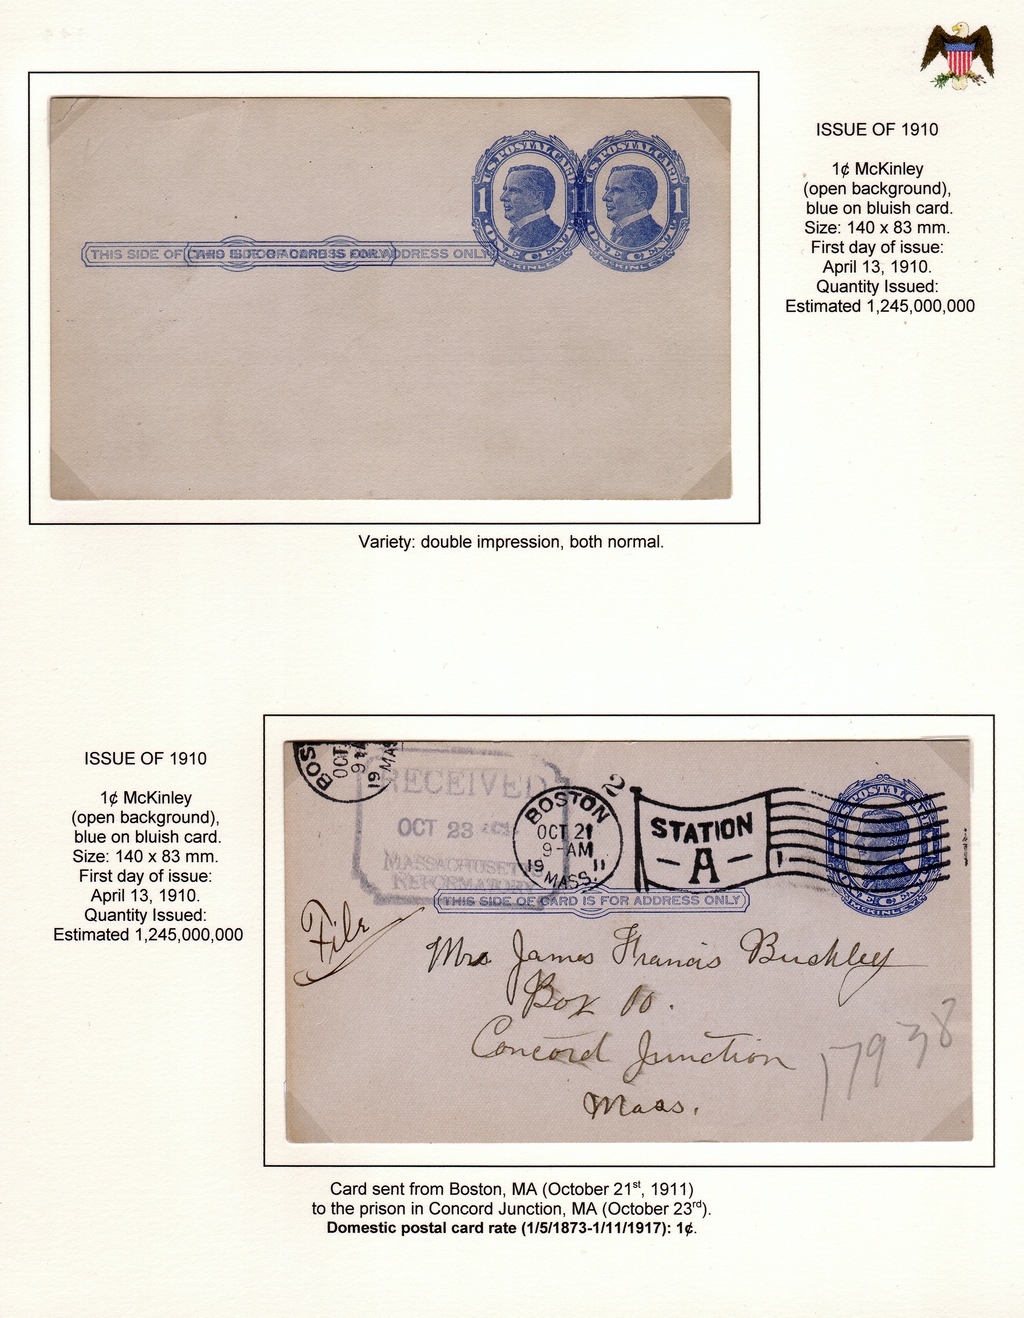 ISSUE OF 1910
1¢ McKinley
(open background),
blue on bluish card.
Size: 140 x 83 mm.
First day of issue:
April 13, 1910.
Quantity Issued:
Estimated 1,245,000,000
U.S. POSTAL CARD
U.S. POSTAL CARD
1
1
ONE CENT
ONE CENT
McKINLEY
McKINLEY
THIS SIDE OF CARD IS FOR ADDRESS ONLY
Variety: double impression, both normal.
ISSUE OF 1910
1¢ McKinley
(open background),
blue on bluish card.
Size: 140 x 83 mm.
First day of issue:
April 13, 1910.
Quantity Issued:
Estimated 1,245,000,000
BOS
OCT
19 MAS
RECEIVED
OCT 23
MASSACHUSET
REFORMATORY
BOSTON 2
OCT 21
9-AM
19 11
MASS.
STATION
-A-
1
POSTAL CARD
1
ONE CENT
McKINLEY
THIS SIDE OF CARD IS FOR ADDRESS ONLY
File
Mrs James Francis Buckley
Box 00.
Concord Junction
Mass.
17938
Card sent from Boston, MA (October 21st, 1911)
to the prison in Concord Junction, MA (October 23rd).
Domestic postal card rate (1/5/1873-1/11/1917): 1¢.